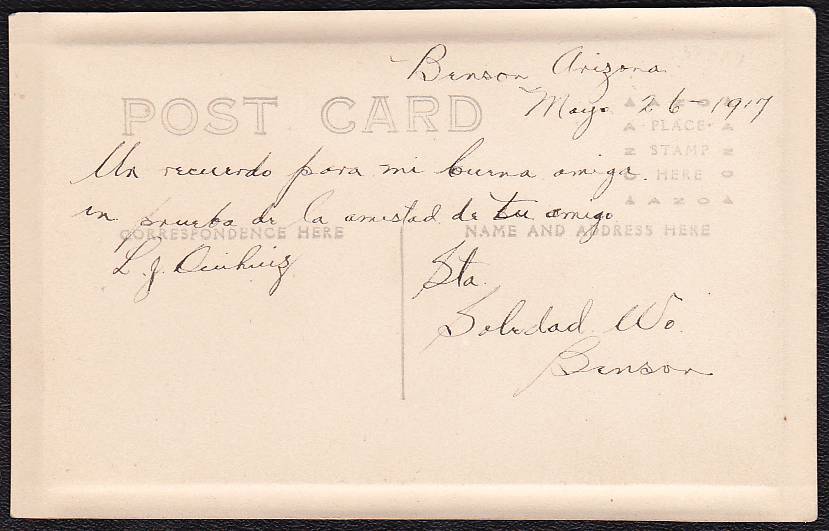 Benson Arizona
Mayo 26-1917
POST CARD
PLACE
STAMP
HERE
AZO
Un recuerdo para mi buena amiga.
en prueba de la amistad de tu amigo
CORRESPONDENCE HERE
NAME AND ADDRESS HERE
L. J.
Sta.
Soledad Wo.
Benson